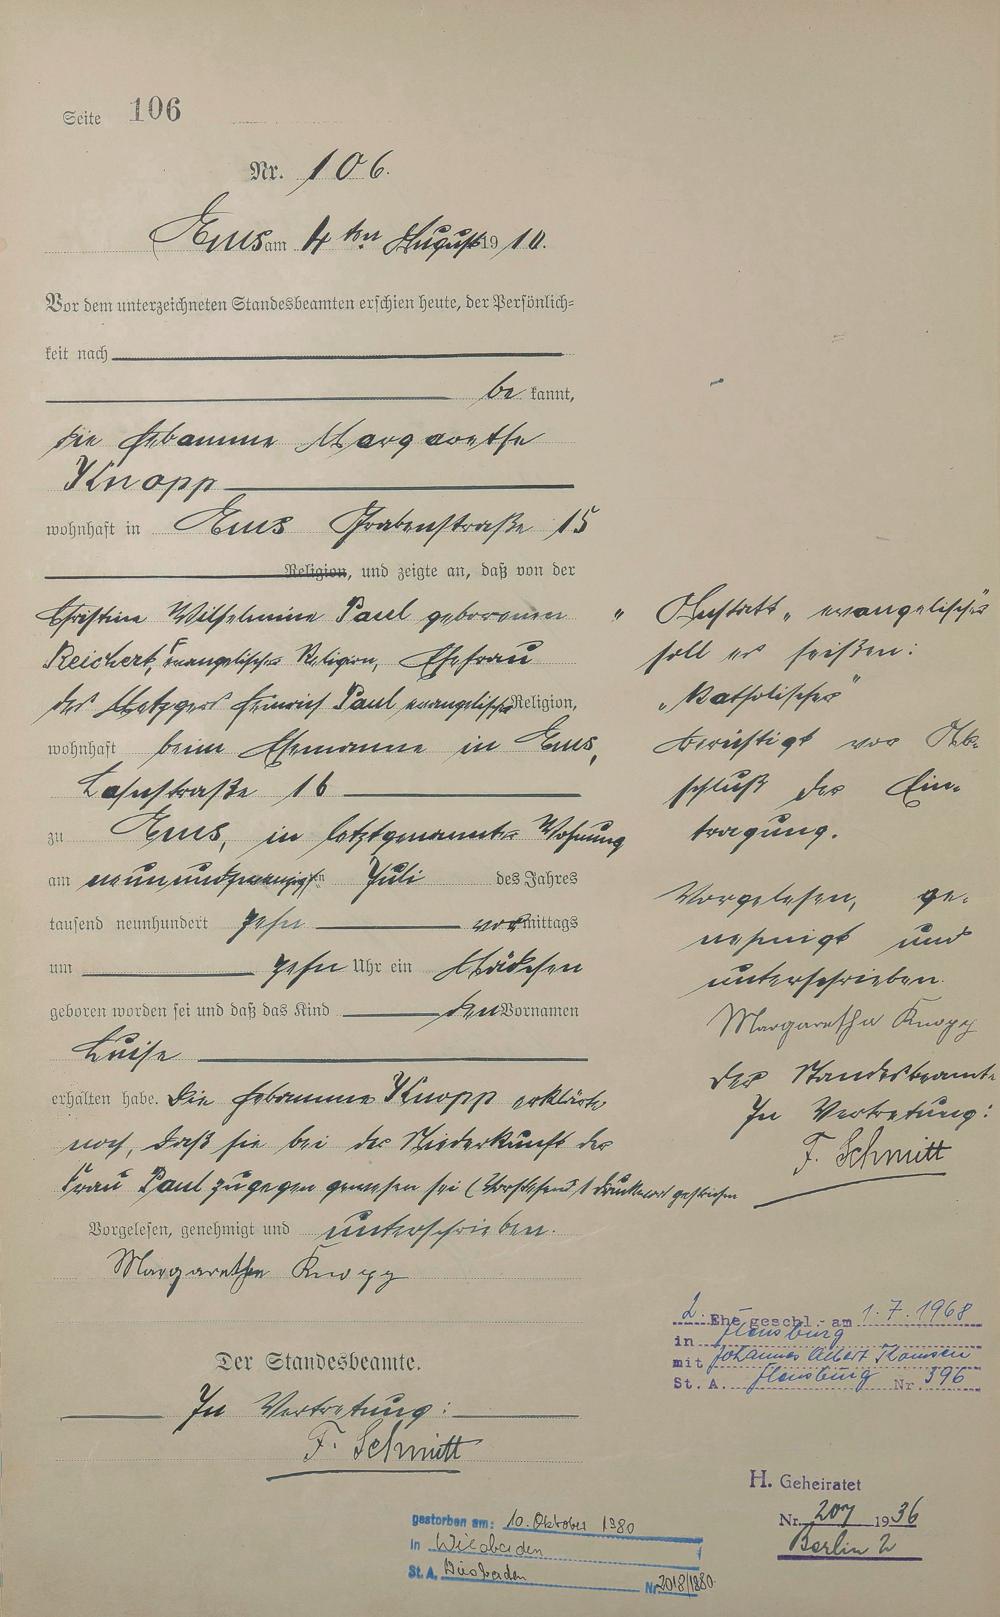 Seite 106
Nr. 106.
Ems am 4ten August 1910.
Vor dem unterzeichneten Standesbeamten erschien heute, der Persönlich=
keit nach
be kannt,
die Hebamme Margarethe
Knopp
wohnhaft in Ems Grabenstraße 15
Religion, und zeigte an, daß von der
Christine Wilhelmine Paul geborenen
Reichert, evangelischer Religion, Ehefrau
des Metzgers Heinrich Paul evangelischer Religion,
wohnhaft beim Ehemanne in Ems,
Lahnstraße 16
zu Ems, in letztgenannter Wohnung
am neunundzwanzigsten Juli des Jahres
tausend neunhundert zehn vormittags
um zehn Uhr ein Mädchen
geboren worden sei und daß das Kind den Vornamen
Luise
erhalten habe. Die Hebamme Knopp erklärte
noch, daß sie bei der Niederkunft der
Frau Paul zugegen gewesen sei (Vorstehend 1 Druckwort gestrichen
Vorgelesen, genehmigt und unterschrieben.
Margarethe Knopp
Der Standesbeamte.
In Vertretung:
F. Schmitt
" Anstatt „evangelischer"
soll es heißen:
„Katholischer"
Berichtigt vor Ab=
schluß der Ein=
tragung.
Vorgelesen, ge=
nehmigt und
unterschrieben.
Margaretha Knopp
Der Standesbeamte
In Vertretung:
F. Schmitt
2. Ehe geschl. am 1.7.1968
in Flensburg
mit Johannes Albert Thomsen
St. A. Flensburg Nr. 396
H. Geheiratet
Nr. 207 1936
Berlin 2
gestorben am: 10. Oktober 1980
in Wiesbaden
St. A. Wiesbaden Nr. 2018/1980